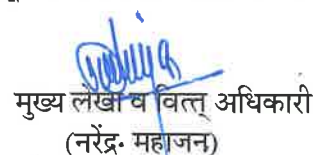 मुख्य लेखा व वित्त् अधिकारी
(नरेंद्र. महाजन)